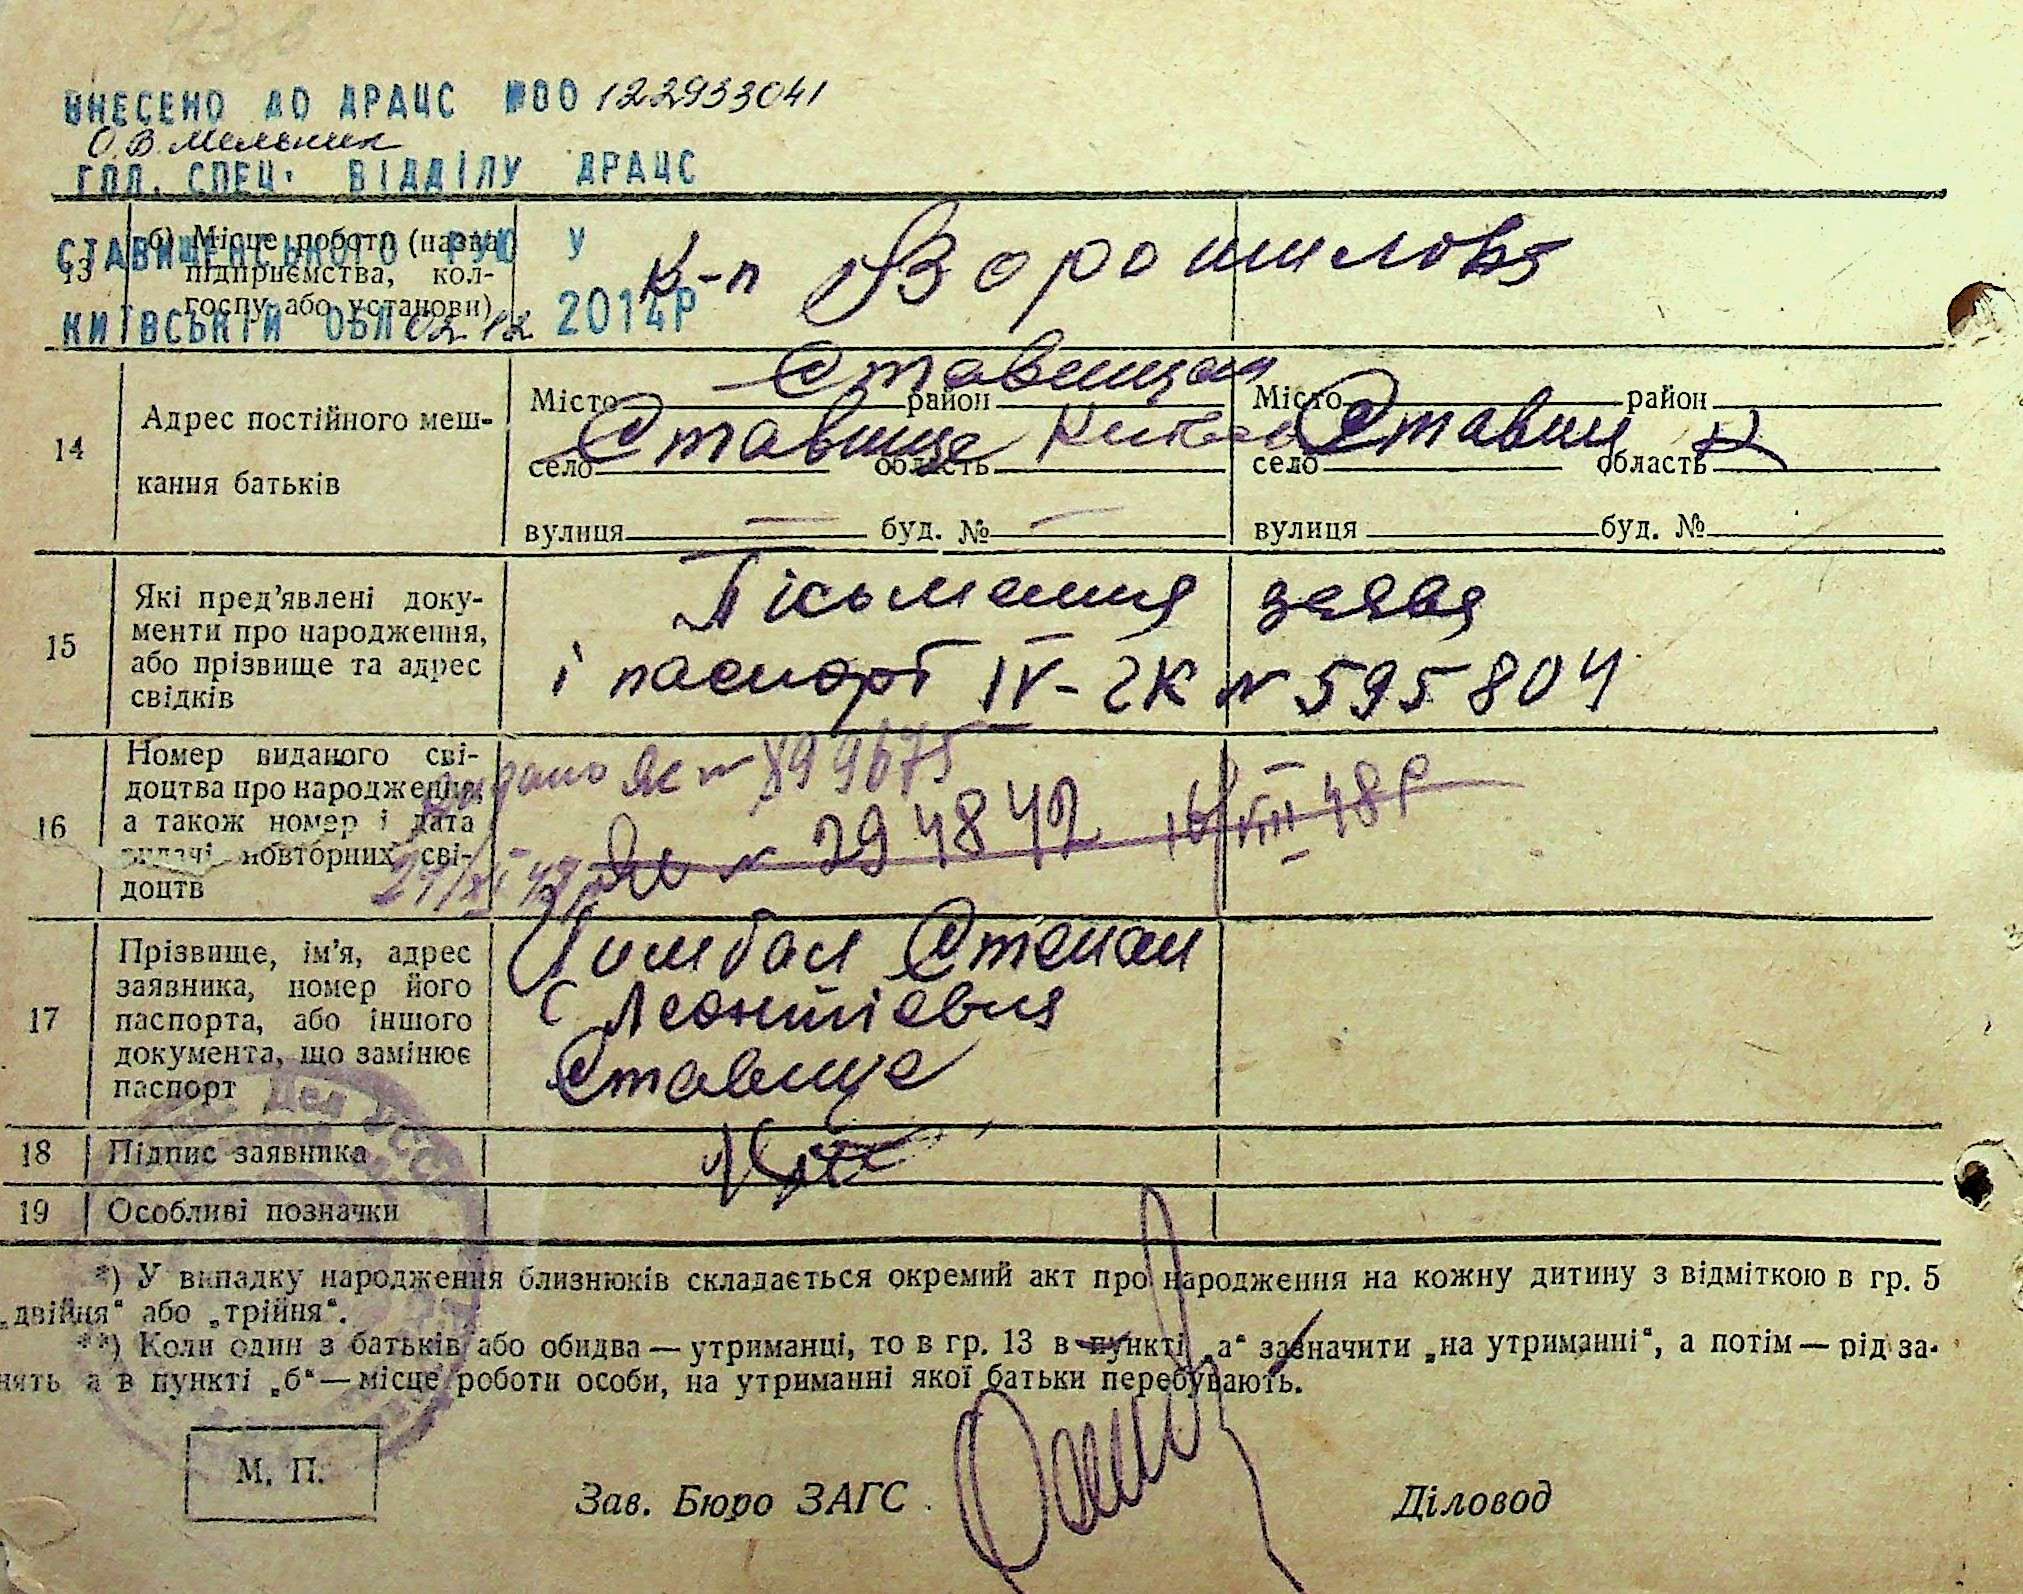 ВНЕСЕНО ДО ДРАЦС №00122933041
О.В. Мельник
ГОЛ. СПЕЦ. ВІДДІЛУ ДРАЦС
СТАВИЩЕНСЬКОГО РУЮ У
КИЇВСЬКІЙ ОБЛ 02.12 2014Р
13 б) Місце роботи (назва
підприємства, кол-
госпу або установи)
к-п Ворошилова
14 Адрес постійного меш-
кання батьків
Місто район
Ставищан
село Ставище область Київ
вулиця — буд. № —
Місто район
село Ставищ область
вулиця буд. №
15 Які пред’явлені доку-
менти про народження,
або прізвище та адрес
свідків
Пісьменна заява
і паспорт IV-ЧК № 595804
16 Номер виданого сві-
доцтва про народження,
а також номер і дата
видачі повторних сві-
доцтв
видано ЯЕ № 899675
№ 294842 16/VIII 48р
17 Прізвище, ім’я, адрес
заявника, номер його
паспорта, або іншого
документа, що замінює
паспорт
Цимбал Степан
Леонтієвич
Ставище
18 Підпис заявника
19 Особливі позначки
*) У випадку народження близнюків складається окремий акт про народження на кожну дитину з відміткою в гр. 5
„двійня“ або „трійня“.
**) Коли один з батьків або обидва — утриманці, то в гр. 13 в пункті „а“ зазначити „на утриманні“, а потім — рід за-
нять а в пункті „б“ — місце роботи особи, на утриманні якої батьки перебувають.
М. П.
Зав. Бюро ЗАГС
Діловод